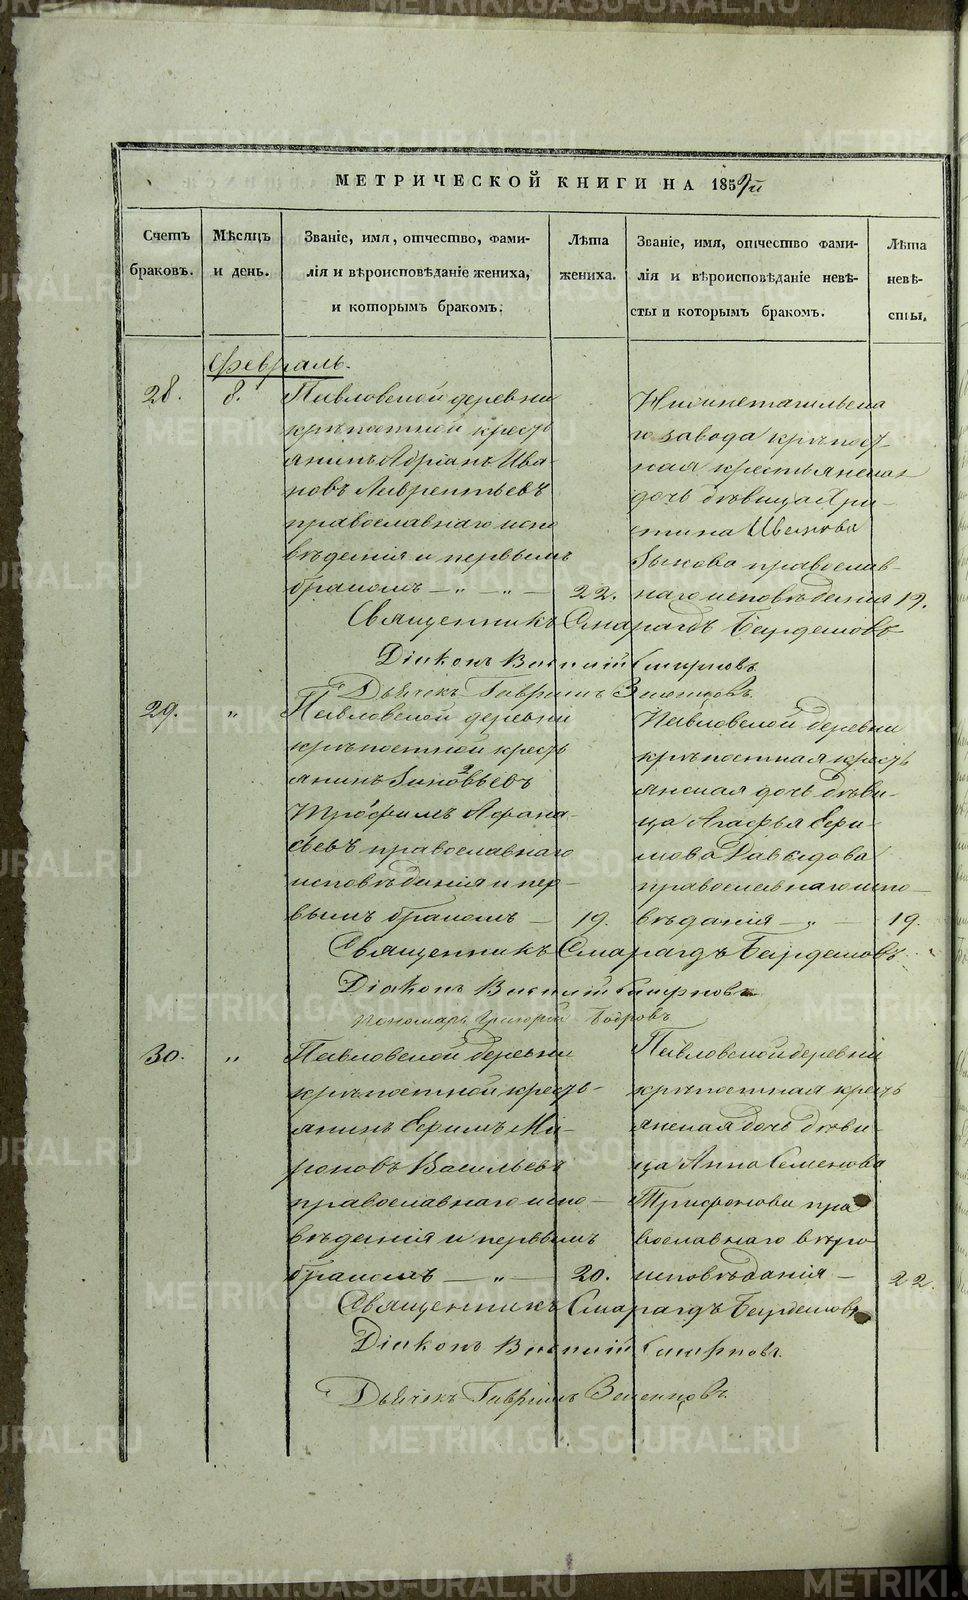 МЕТРИЧЕСКОЙ КНИГИ НА 185
Счетъ браковъ.
Мѣсяцъ и день.
Званіе, имя, отчество, фами-
лія и вѣроисповѣданіе жениха,
и которымъ бракомъ.
Лѣта жениха.
Званіе, имя, отчество фами-
лія и вѣроисповѣданіе невѣ-
сты и которымъ бракомъ.
Лѣта невѣ-
сты.
Февраль.
28.
8.
Павловской деревни
крѣпостной кресть
янинъ Адріанъ Ива
новъ Лаврентьевъ
православнаго испо
вѣданія и первымъ
бракомъ — „ — „ —
22.
Нижнетагильска
го завода крѣпост
ная крестьянская
дочь дѣвица Хри
стина Иванова
Зыкова православ-
наго исповѣданія
19.
Священникъ Смарагдъ Бирюковъ
Діаконъ Василій Смирновъ
Дьячекъ Гавріилъ
29.
„
Павловской деревни
крѣпостной кресть
янинъ Зиновьевъ
Трофимъ Афана
сьевъ православнаго
исповѣданія и пер-
вымъ бракомъ —
19.
Павловской деревни
крѣпостная кресть
янская дочь дѣви-
ца Агафья Ефи
мова Давыдова
православнаго испо-
вѣданія — „ —
19.
Священникъ Смарагдъ
Діаконъ Василій Смирновъ
Пономарь Григорій Бобровъ
30.
„
Павловской деревни
крѣпостной кресть-
янинъ Ефимъ Ми-
роновъ Васильевъ
православнаго испо-
вѣданія и первымъ
бракомъ — „ —
20.
Павловской деревни
крѣпостная кресть
янская дочь дѣви-
ца Анна Семенова
Трифонова пра
вославнаго вѣро
исповѣданія —
22.
Священникъ Смарагдъ
Діаконъ Василій Смирновъ.
Дьячекъ Гавріилъ
METRIKI.GASO-URAL.RU